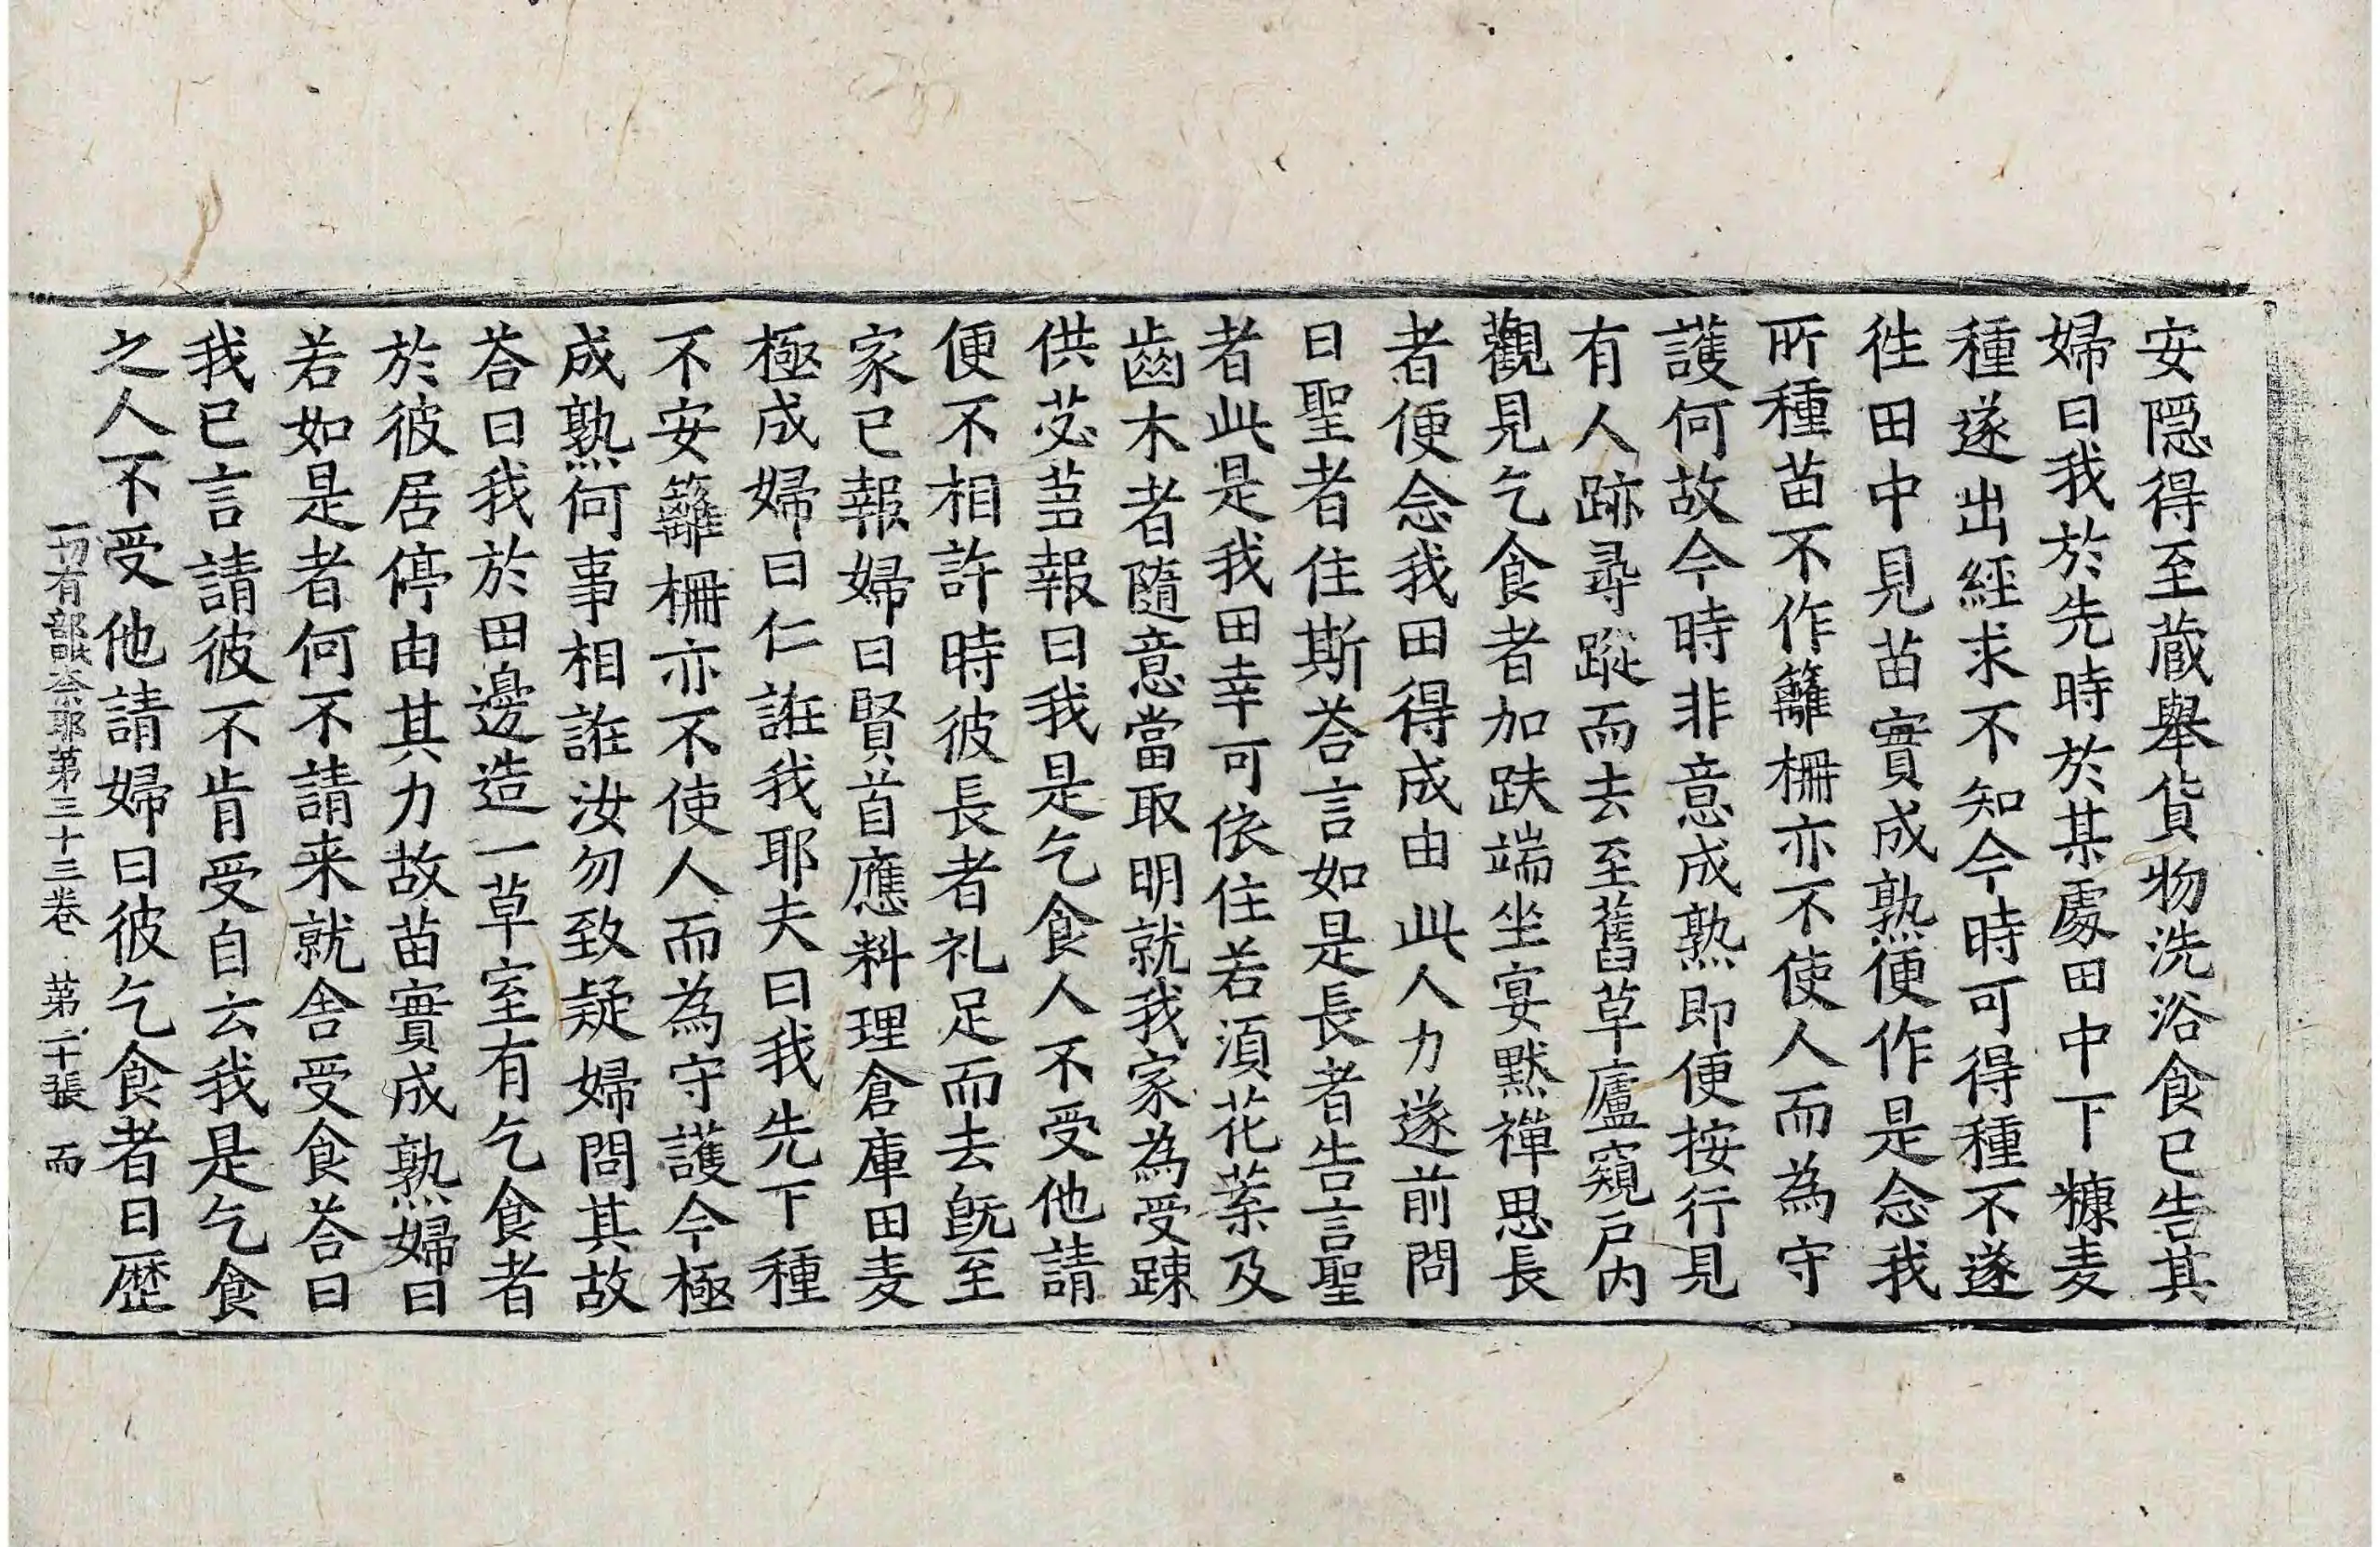 安隠得至蔵舉貨物洗浴食已告其
婦曰我於先時於某處田中下穅麦
種遂出經求不知今時可得種不遂
徃田中見苗實成熟便作是念我
所種苗不作籬柵亦不使人而為守
護何故今時非意成熟即便按行見
有人跡尋蹤而去至舊草廬窺户内
觀見乞食者加趺端坐宴默禪思長
者便念我田得成由此人力遂前問
曰聖者住斯荅言如是長者告言聖
者此是我田幸可依住若湏花菓及
齒木者隨意當取明就我家為受踈
供苾蒭報曰我是乞食人不受他請
便不相許時彼長者礼足而去旣至
家已報婦曰賢首應料理倉庫田麦
極成婦曰仁誑我耶夫曰我先下種
不安籬柵亦不使人而為守護今極
成熟何事相誑汝勿致疑婦問其故
荅曰我於田邊造一草室有乞食者
於彼居停由其力故苗實成熟婦曰
若如是者何不請来就舍受食荅曰
我已言請彼不肯受自云我是乞食
之人不受他請婦曰彼乞食者日歷
一切有部毗奈耶第三十三卷 第二十張 而